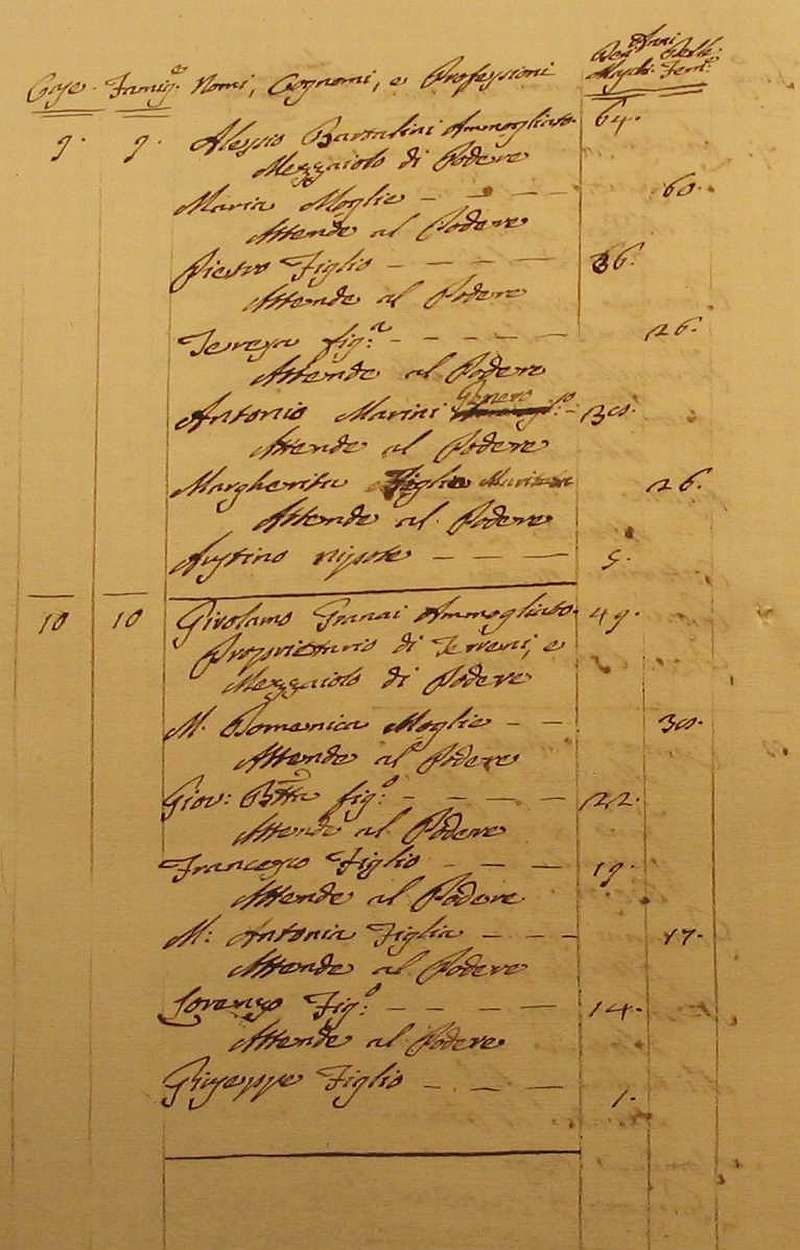 Case. Famig.e Nomi, Cognomi, e Professioni Anni
Maschi. Fem.e
9. 9. Alessio Bartalini Ammogliato. 64.
Mezzaiolo di Podere
Maria Moglie - - - - 60.
Attende al Podere
Pietro Figlio - - - - 36.
Attende al Podere
Teresa fig.a - - - - - 26.
Attende al Podere
Antonio Marini Genero - 30.
Attende al Podere
Margherita Figlia 26.
Attende al Podere
Austino nipote - - - - 5.
10 10 Girolamo Granai Ammogliato. 49.
Proprietario di Terreni, e
Mezzaiolo di Podere
M. Domenica Moglie - - 30.
Attende al Podere
Giov: Btta fig.o - - - - 22.
Attende al Podere
Francesco Figlio - - - 19.
Attende al Podere
M: Antonia Figlia - - - - 17.
Attende al Podere
Lorenzo Fig.o - - - - 14.
Attende al Podere
Giuseppe Figlio - - - 1.